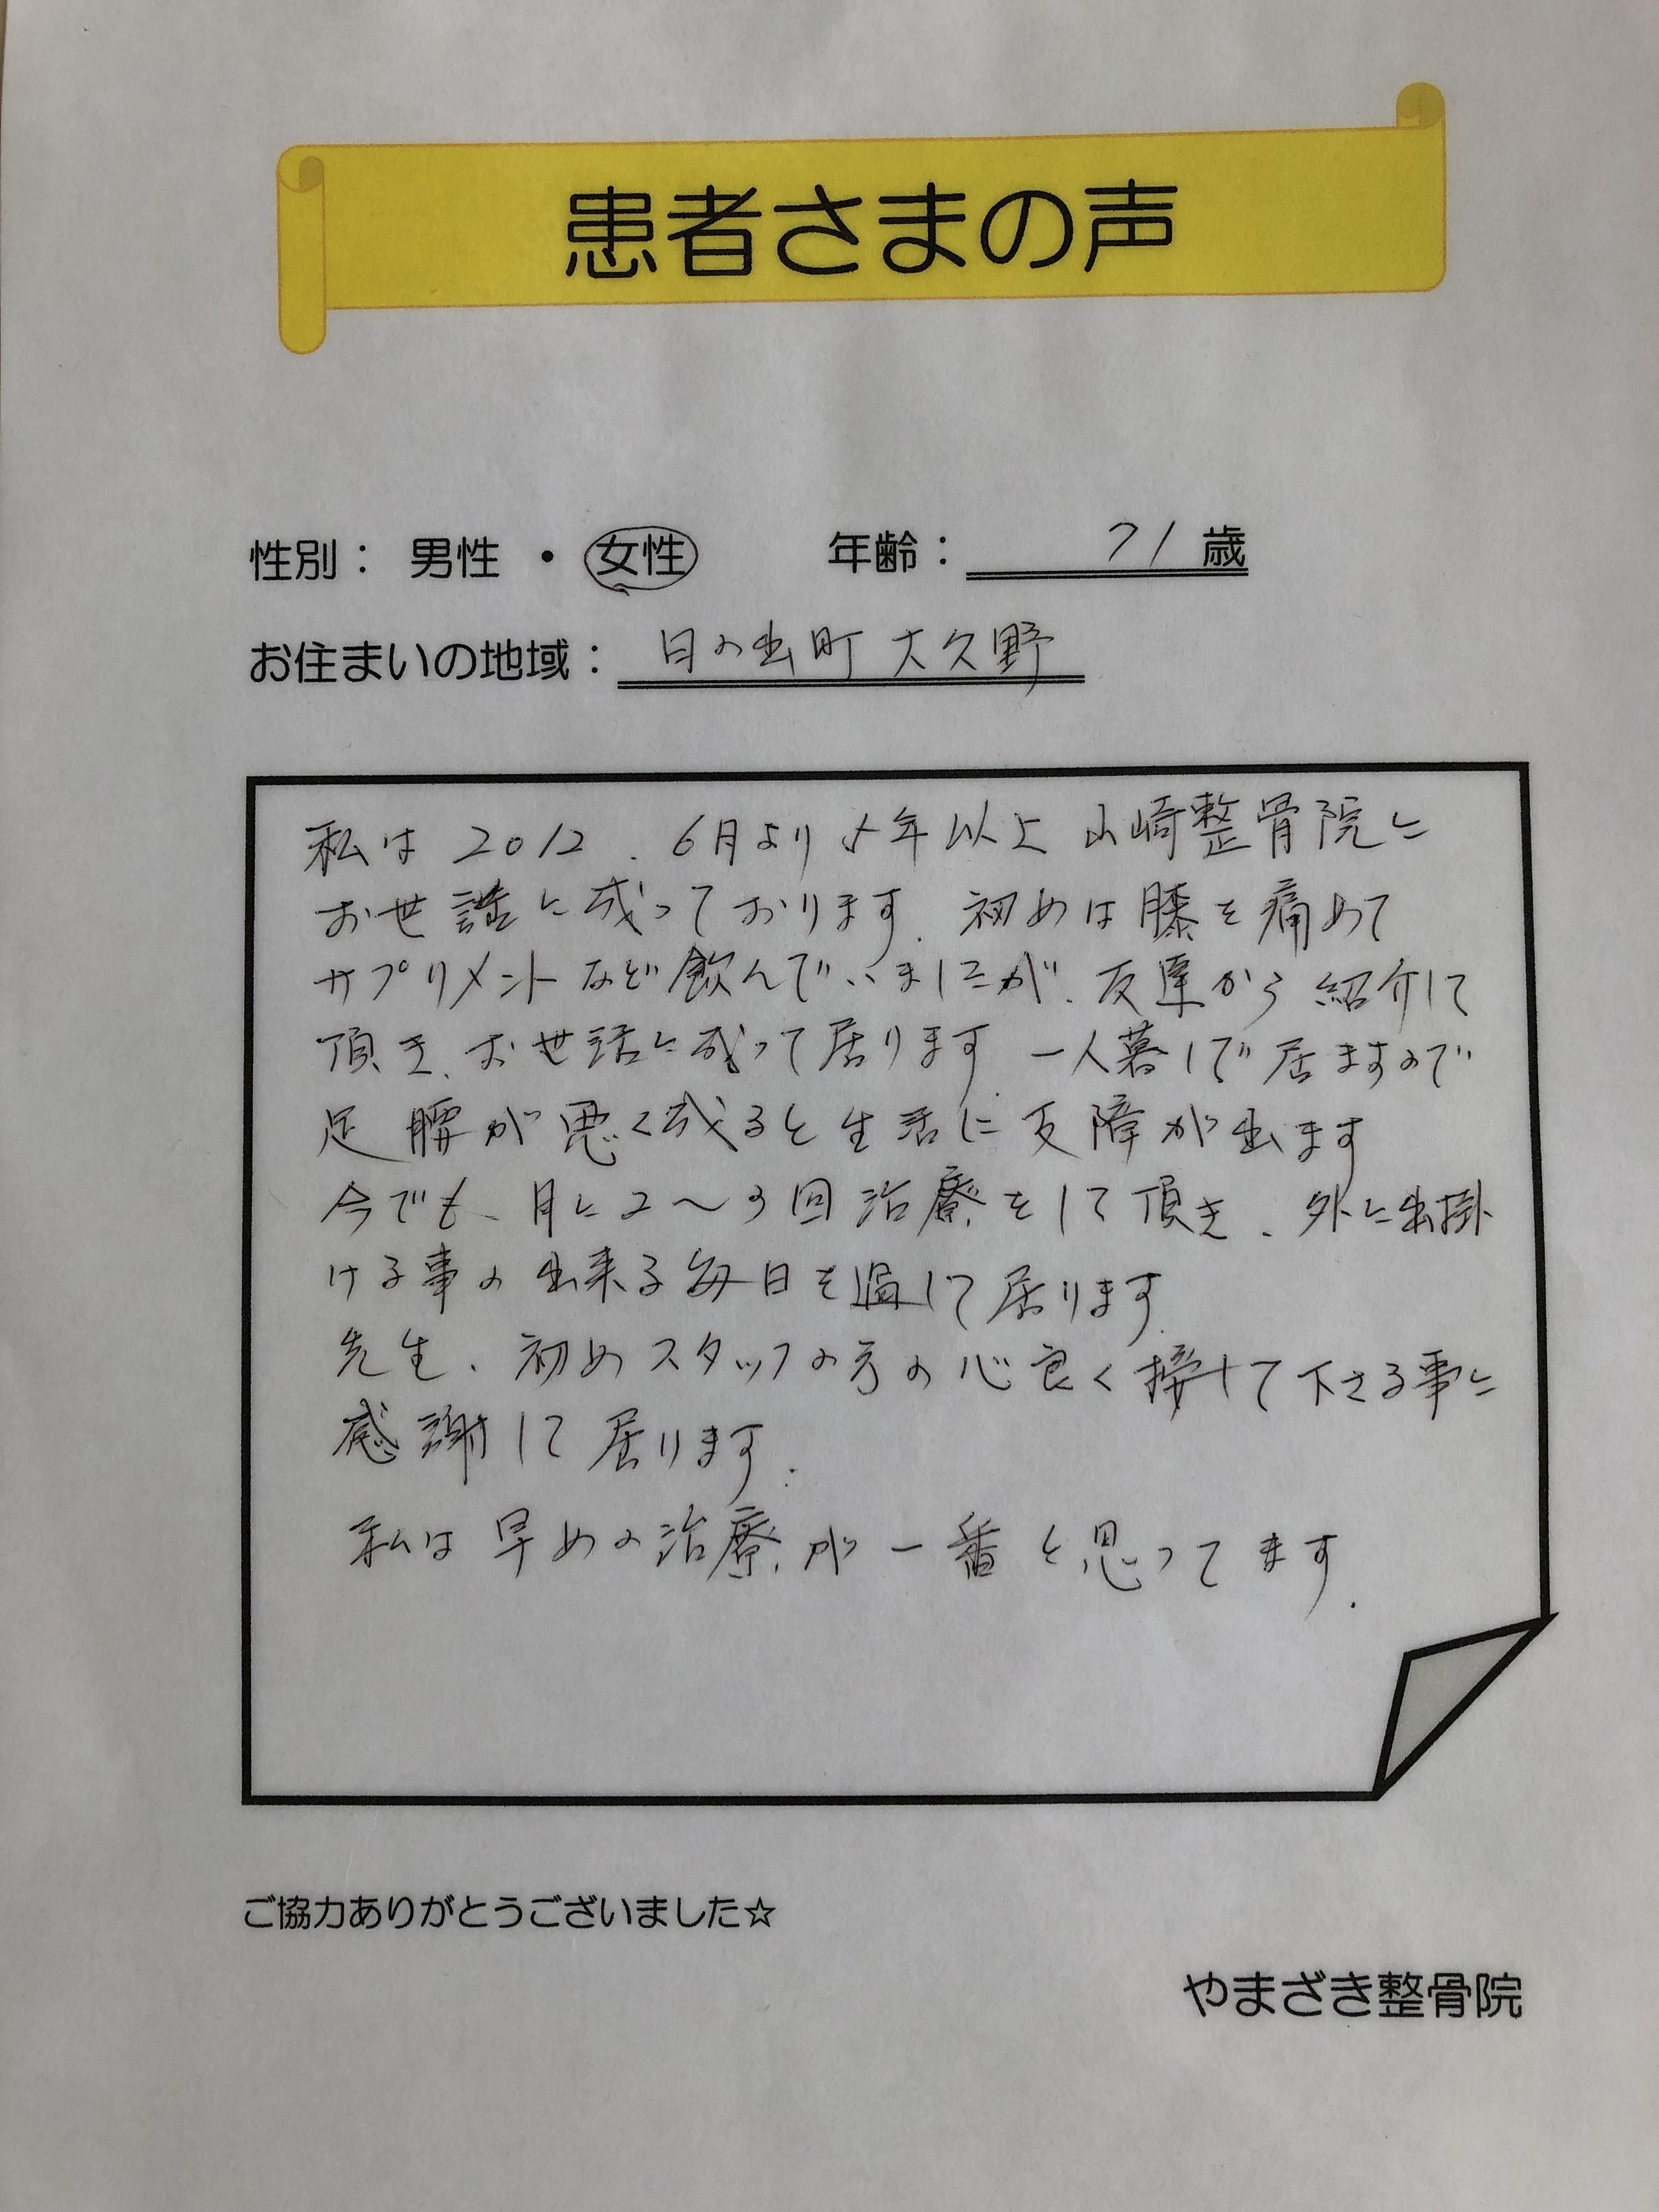 患者さまの声
性別： 男性 ・ 女性 年齢： 71 歳
お住まいの地域： 日の出町 大久野
私は 2012．6月より 5年以上 山崎整骨院に
お世話に成っております．初めは膝を痛めて
サプリメントなど飲んでいましたが、友達から紹介して
頂き、お世話に成って居ります．一人暮しで居ますので
足腰が悪く成ると生活に支障が出ます
今でも、月に2～3回治療をして頂き、外に出掛
ける事の出来る毎日を過して居ります．
先生、初めスタッフの方の心良く接して下さる事に
感謝して居ります．
私は早めの治療が一番と思ってます．
ご協力ありがとうございました☆
やまざき整骨院